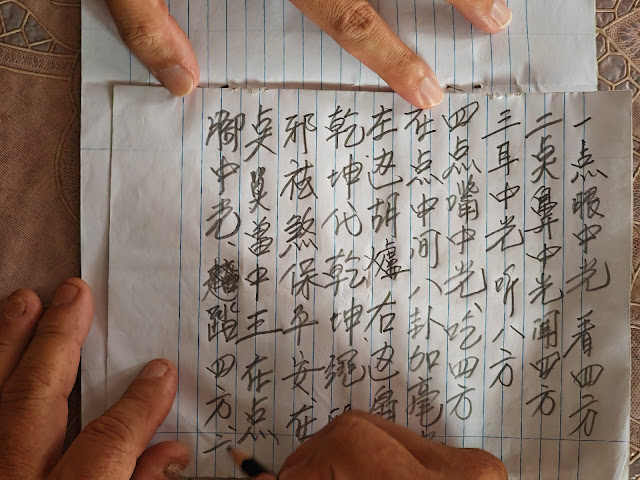 一点眼中光 看四方
二奌鼻中光闻四方
三耳中光 听八方
四点嘴中光 吃四方
在点中间八卦加毫
左边胡爐右边
乾坤代乾坤繩
邪祛煞保平安在
奌當中王在点
腳中光、跑四方、